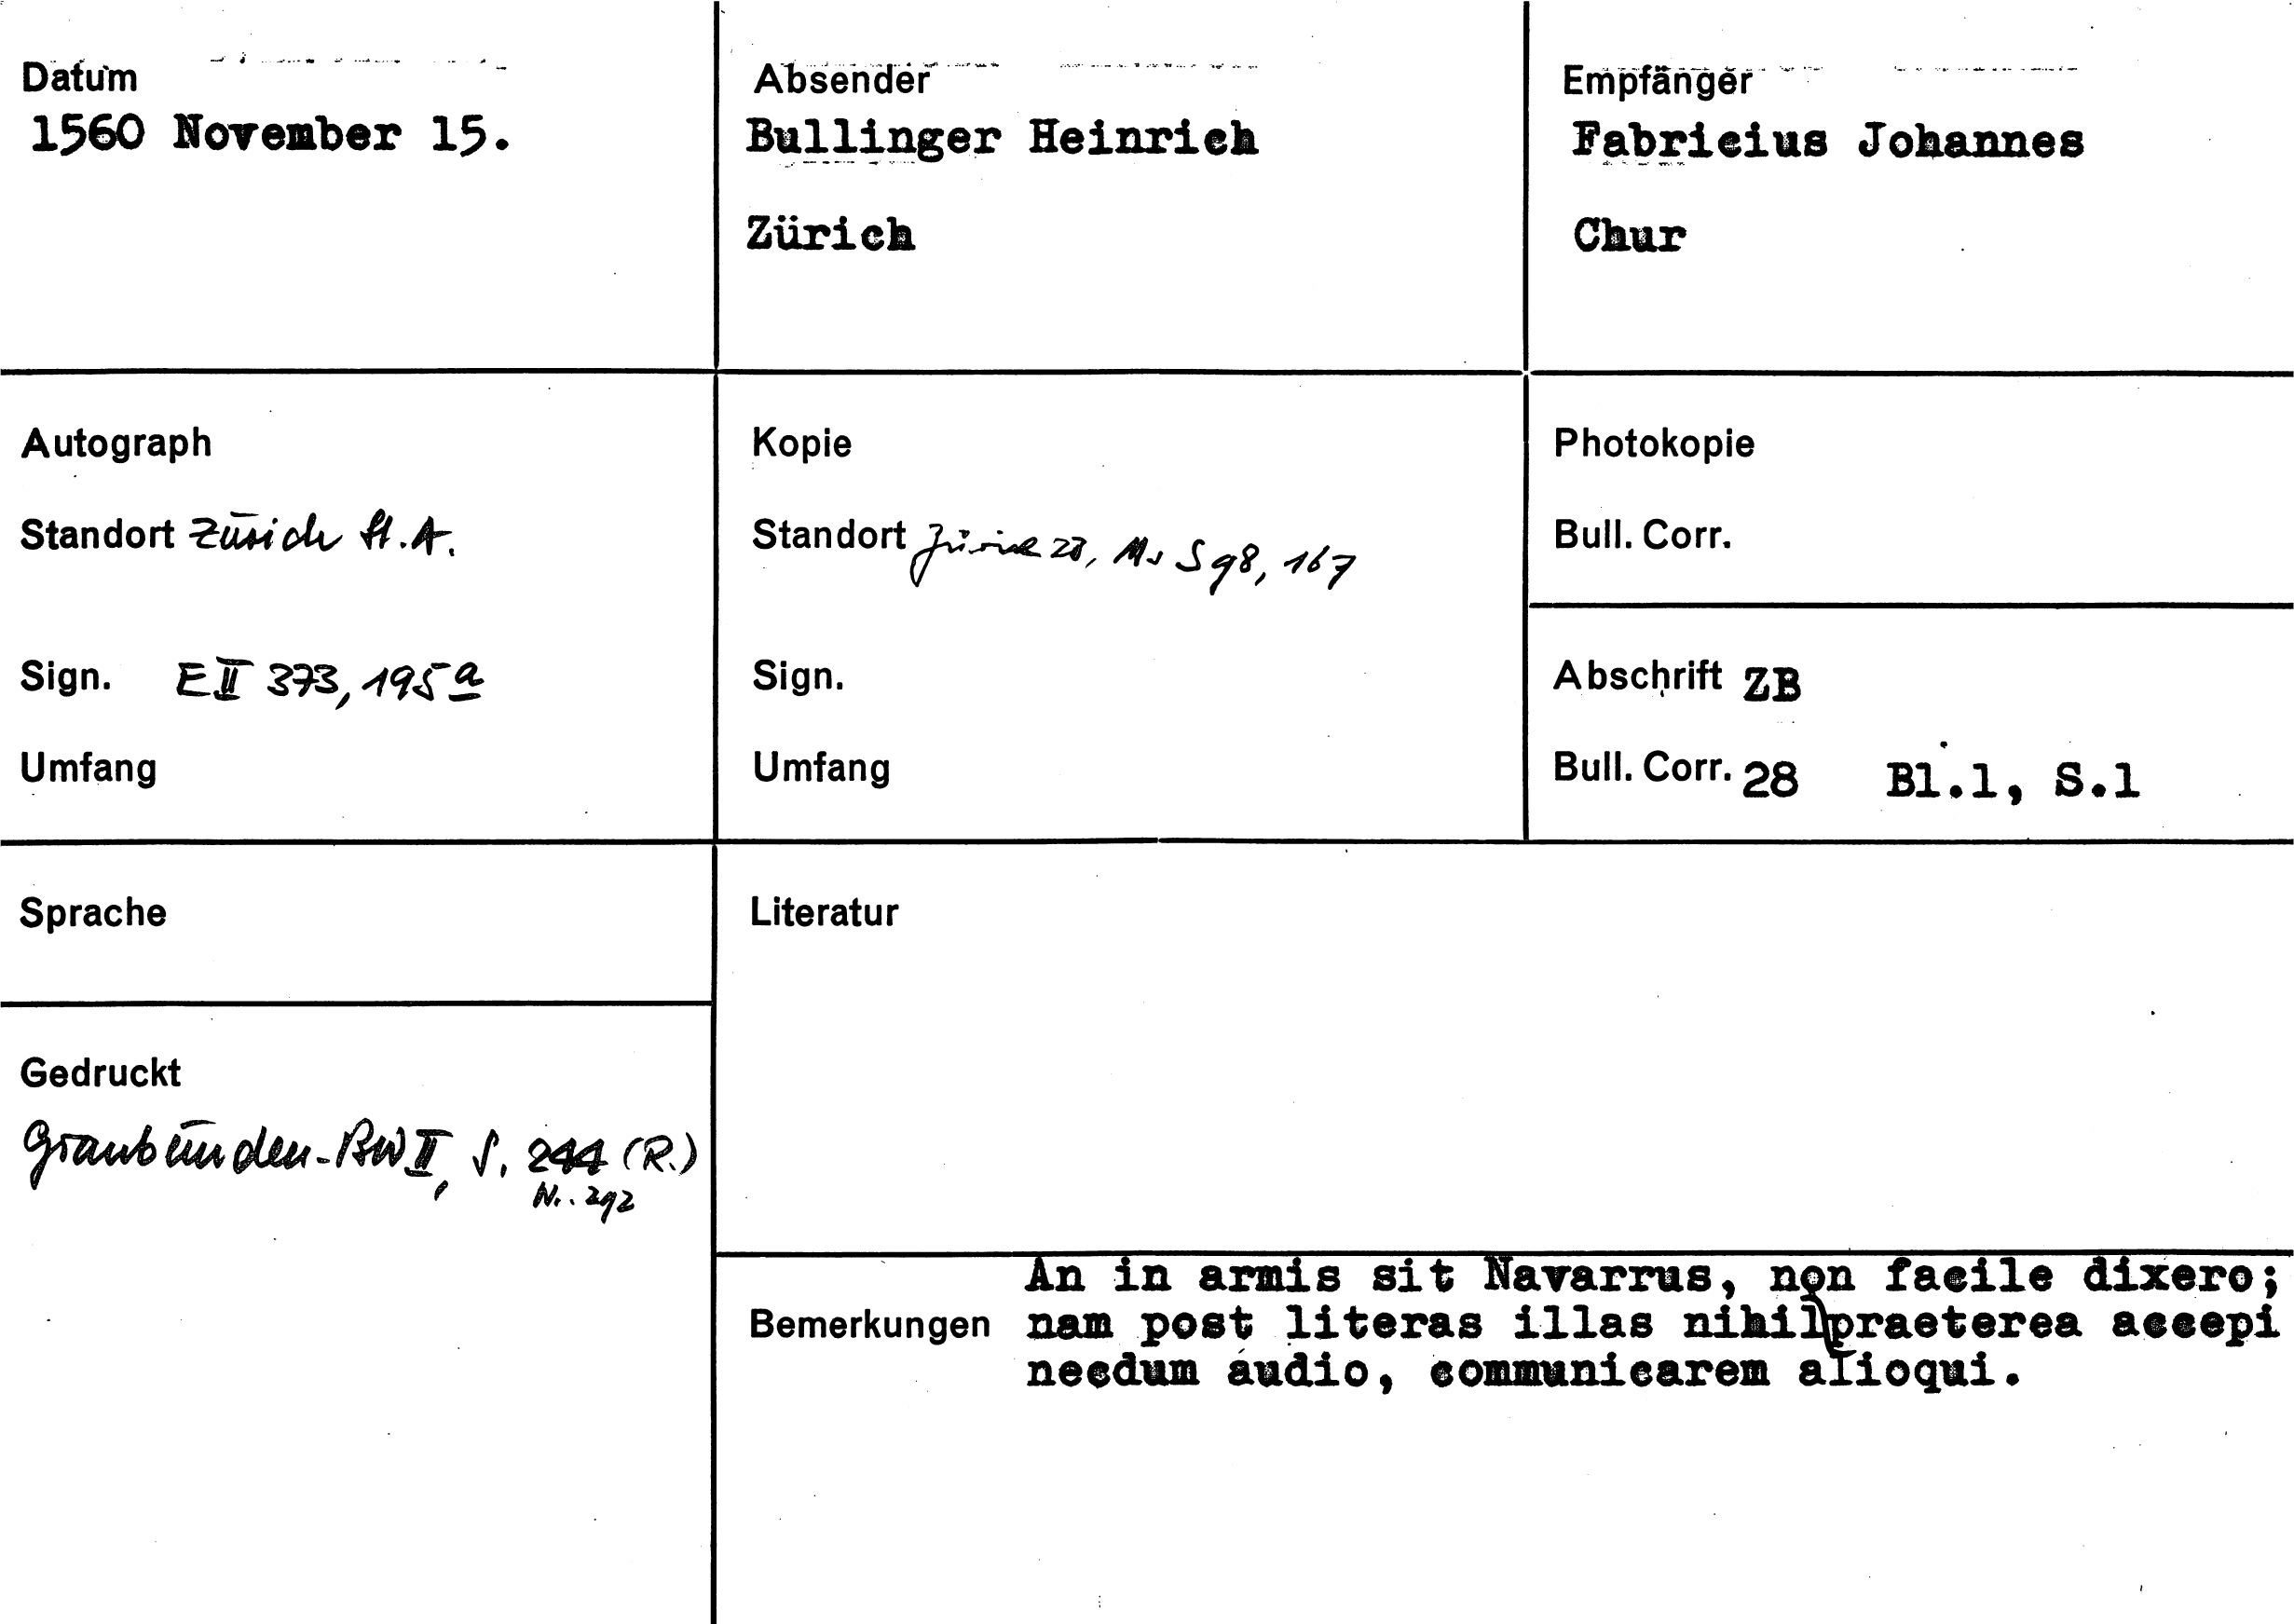 Datum
1560 November 15.
Absender
Bullinger Heinrich
Zürich
Empfänger
Fabricius Johannes
Chur
Autograph
Standort Zürich St.A.
Sign. EII 373, 195a
Umfang
Kopie
Standort Zürich ZB, Ms S 98, 167
Sign.
Umfang
Photokopie
Bull. Corr.
Abschrift ZB
Bull. Corr. 28 Bl.1, S.1
Sprache
Literatur
Gedruckt
Graubünden-BW II, S. 244 (R.)
Nr. 292
Bemerkungen
An in armis sit Navarrus, non facile dixero;
nam post literas illas nihil praeterea accepi
necdum audio, communicarem alioqui.